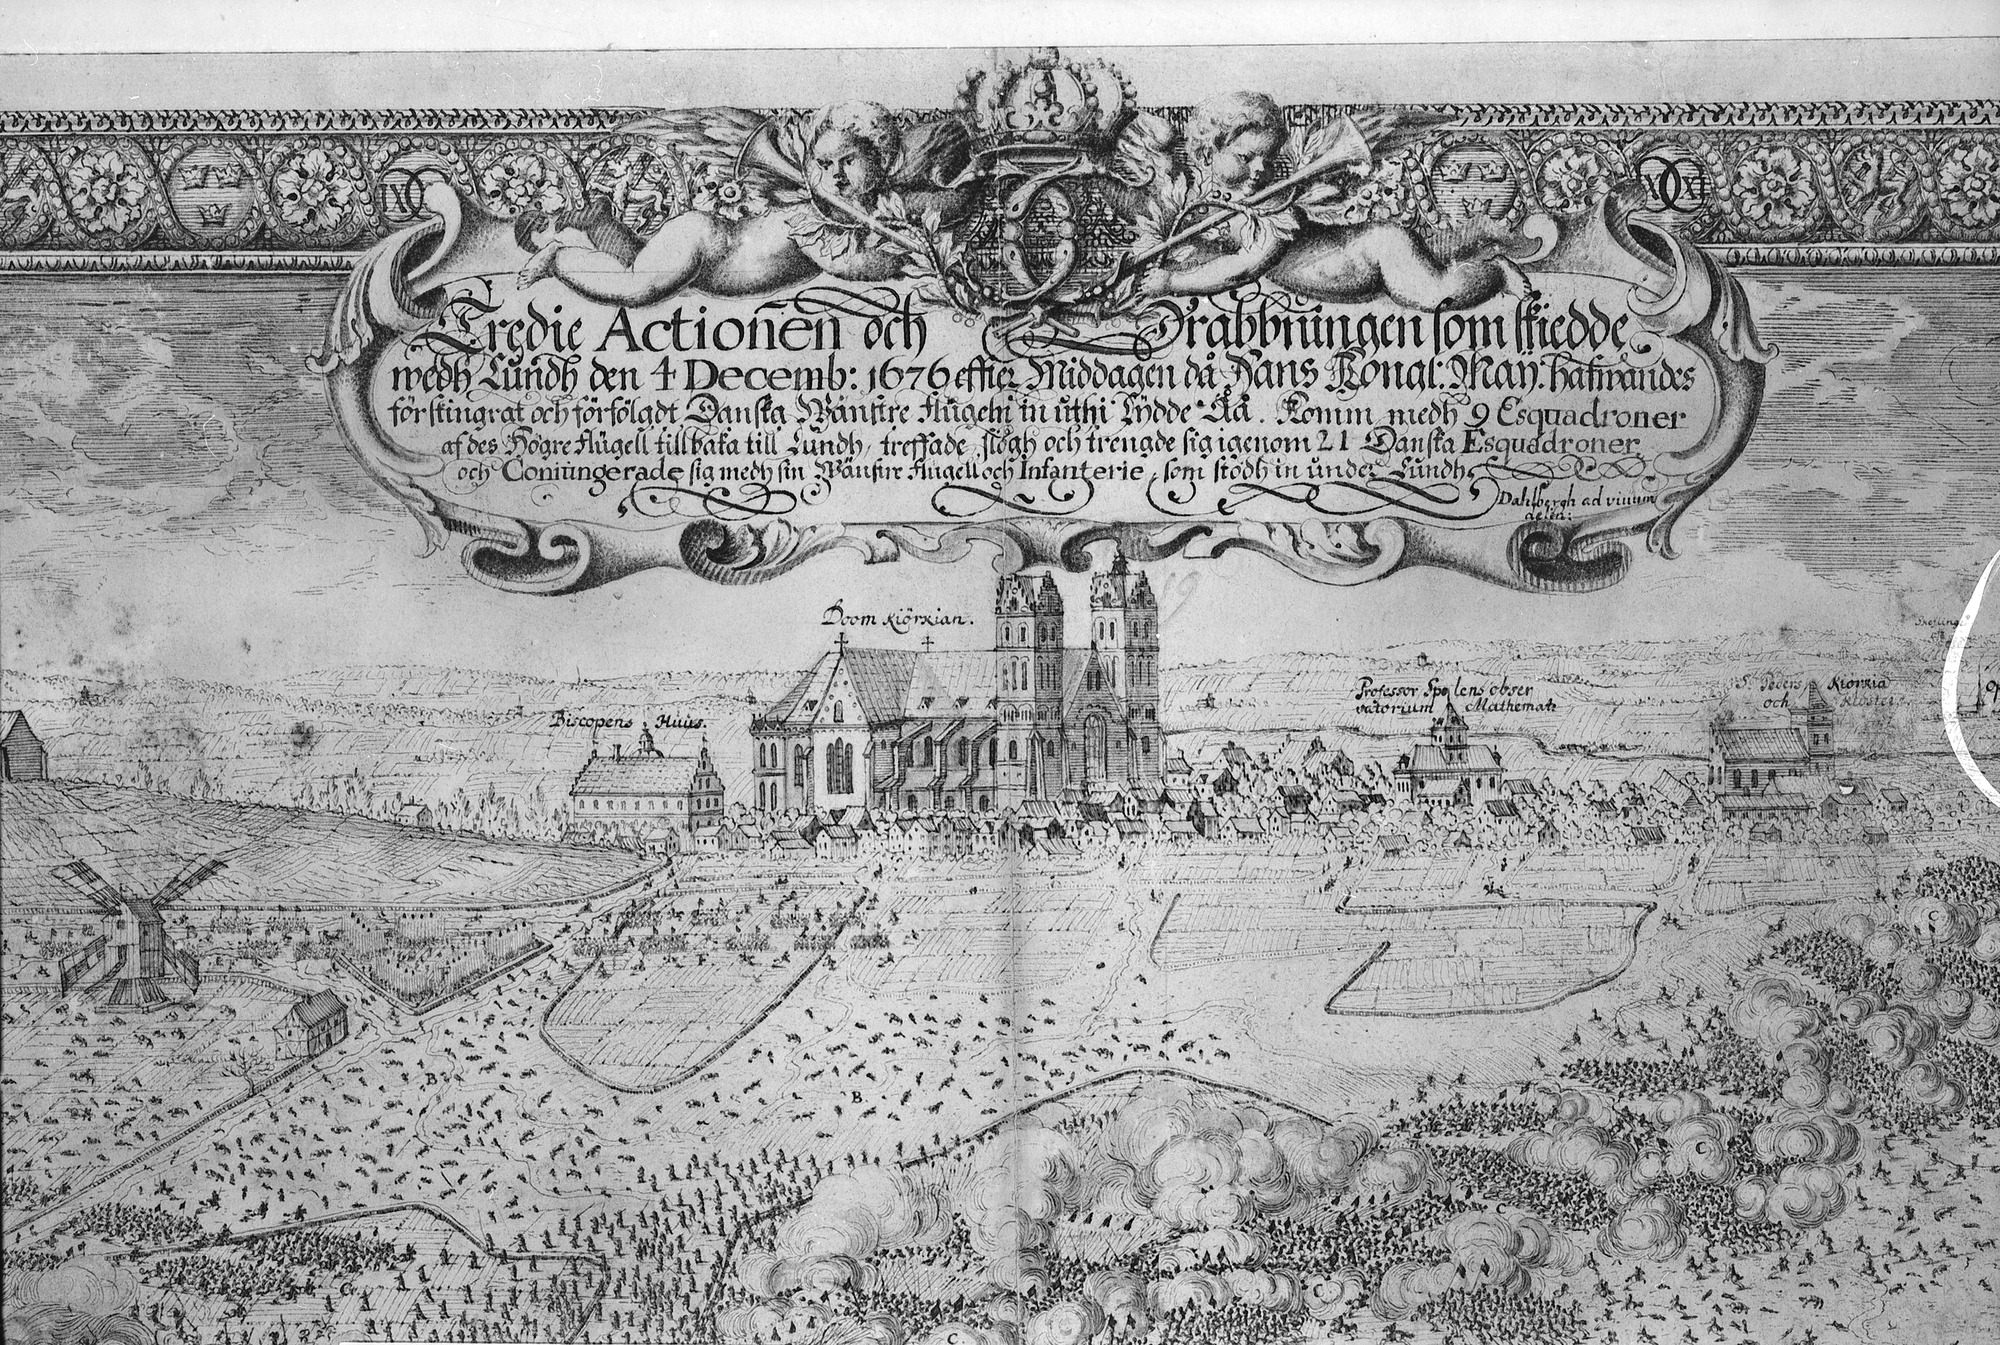 IXC
XCXI
Tredie Actionen och Drabbningen som skiedde
wedh Lundh den 4 Decemb: 1676 effter Middagen då Hans Kongl: Maÿ:
förskingrat och förfölgdt Danska Wänstre flÿgeln in uthi Lÿdde Åå. Komm medh 9 Esquadroner
af des Högre flügell tillbaka till Lundh, treffade, slogh och trengde sig igenom 21 Danska Esquadroner,
och Coniüngerade sig medh sin Wänstre flügell och Infanterie, som stodh in ünder Lundh.
Dahlbergh ad vivum
delin:
Doom kiörkian.
Biscopens Huus.
Professor Spolens obser
vatorium Mathemat:
S. Peders kiorkia
och kloster
B
B
C
C
C
C
C
F